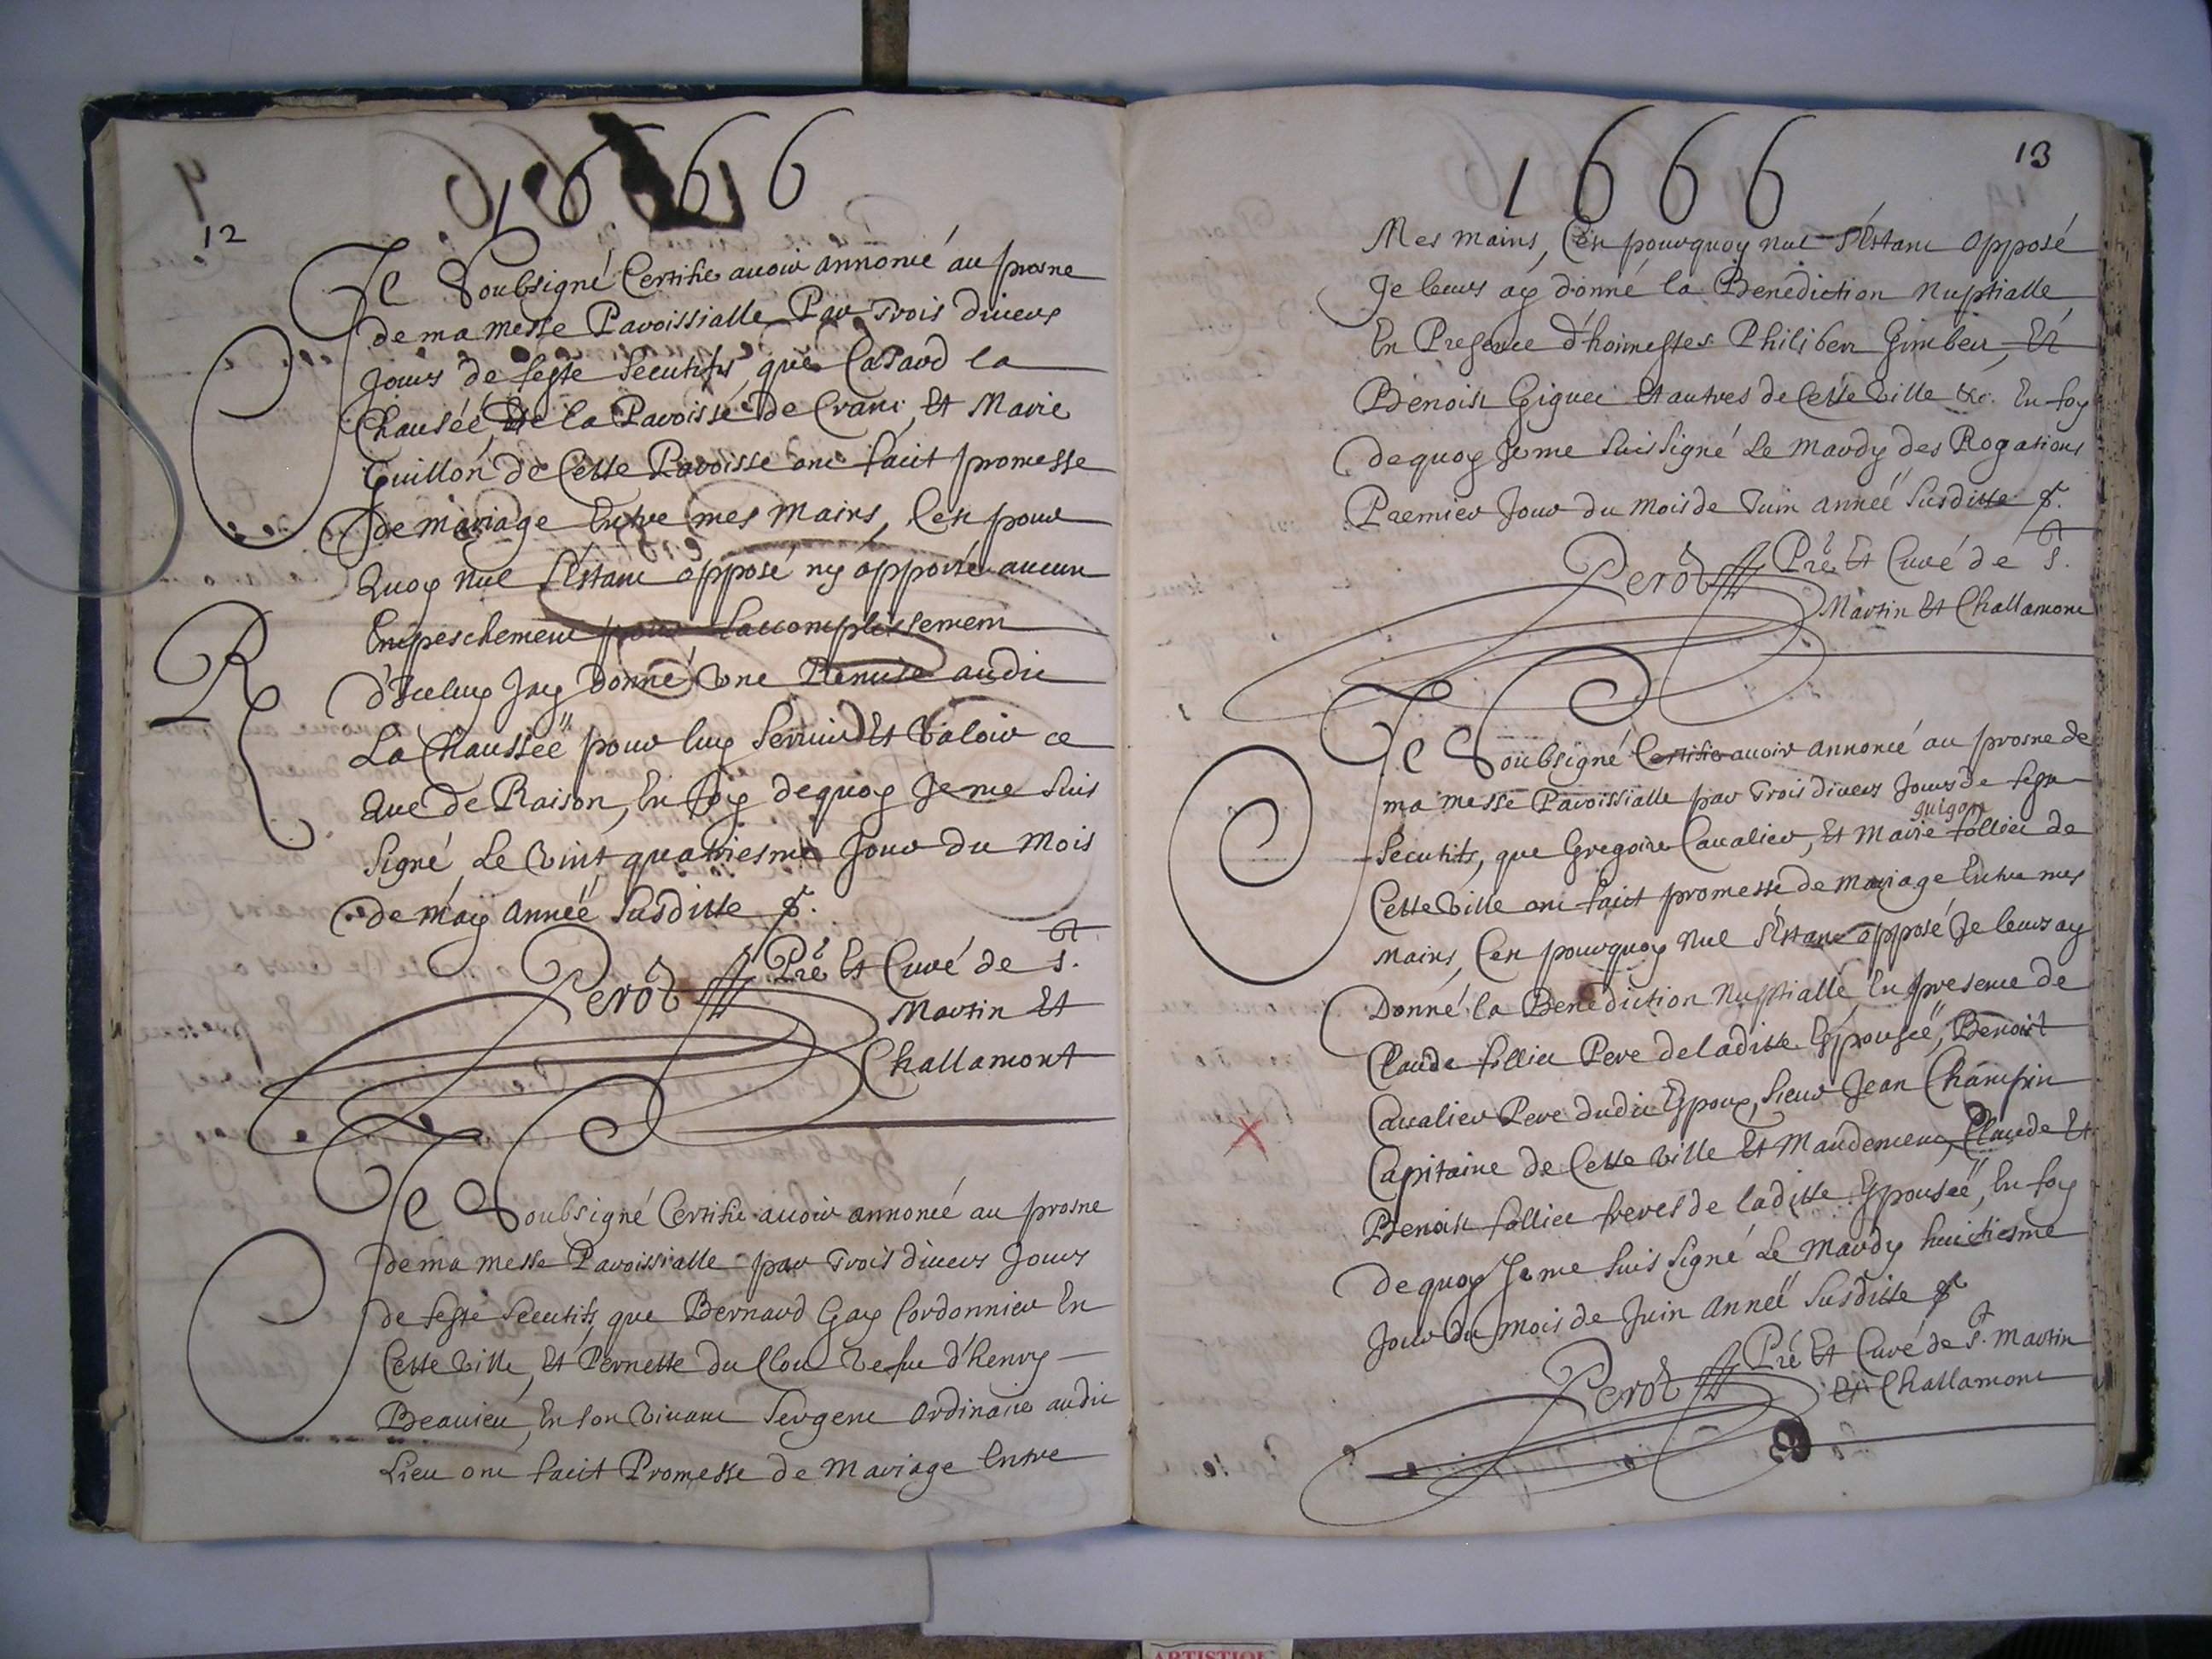 1666
12
Je Soubsigné Certifie auoir annoncé au prosne
de ma messe Paroissialle Par Trois diuers
Jours de feste Secutifs, que Casard la
Chausée, de la Paroisse de Crans, Et Marie
Guillon de Cette Paroisse ont faict promesse
de mariage Entre mes Mains, C'est pour
Quoy Nul S'estant opposé ny apporté aucun
Empeschement pour L'accomplissement
d'Iceluy Jay donné Vne Remise audit
R
La Chausseë pour luy Seruir Et Valoir ce
Que de Raison, En foy dequoy Je me Suis
Signé, Le Vint quatriesme Jour du Mois
de may anneë Susditte
Perôt Prê Et Curé de St.
Martin Et
Challamont
Je Soubsigné Certifie auoir annoncé au prosne
de ma messe Paroissialle par Trois diuers Jours
de feste Secutifs, que Bernard Gay Cordonnier En
Cette Ville, Et Pernette du Clou Vefue d'henry
Beauieu, En son Viuant Sergent Ordinaire audit
Lieu ont faict Promesse de Mariage Entre
1666
13
Mes mains, C'est pourquoy nul S'estant Opposé
Je leurs ay donné la Benediction Nuptialle
En Presence d'honnestes Philibert Gimbert, Et
Benoist Giguet Et autres de Cette Ville &c. En foy
dequoy Je me Suis Signé Le Mardy des Rogations
Premier Jour du Mois de Juin anneë Susditte
Perôt Prê Et Curé de St.
Martin Et Challamont
Je Soubsigné Certifie auoir annoncé au prosne de
ma messe Paroissialle par Trois diuers Jours de feste
guigon
Secutifs, que Gregoire Caualier, Et Marie follier de
Cette Ville ont faict promesse de Mariage Entre mes
Mains, C'est pourquoy Nul S'estant opposé Je leurs ay
Donné la Benediction Nuptialle, En presence de
Claude follier Pere de laditte Espouseë, Benoist
Caualier Pere dudit Espoux, Sieur Jean Champin
Capitaine de Cette Ville Et Mandement, Claude Et
Benoist follier freres de laditte Espouseë, En foy
dequoy Je me Suis Signé Le Mardy huictiesme
Jour du Mois de Juin anneë Susditte
Perôt Prê Et Curé de St. Martin
Et Challamont